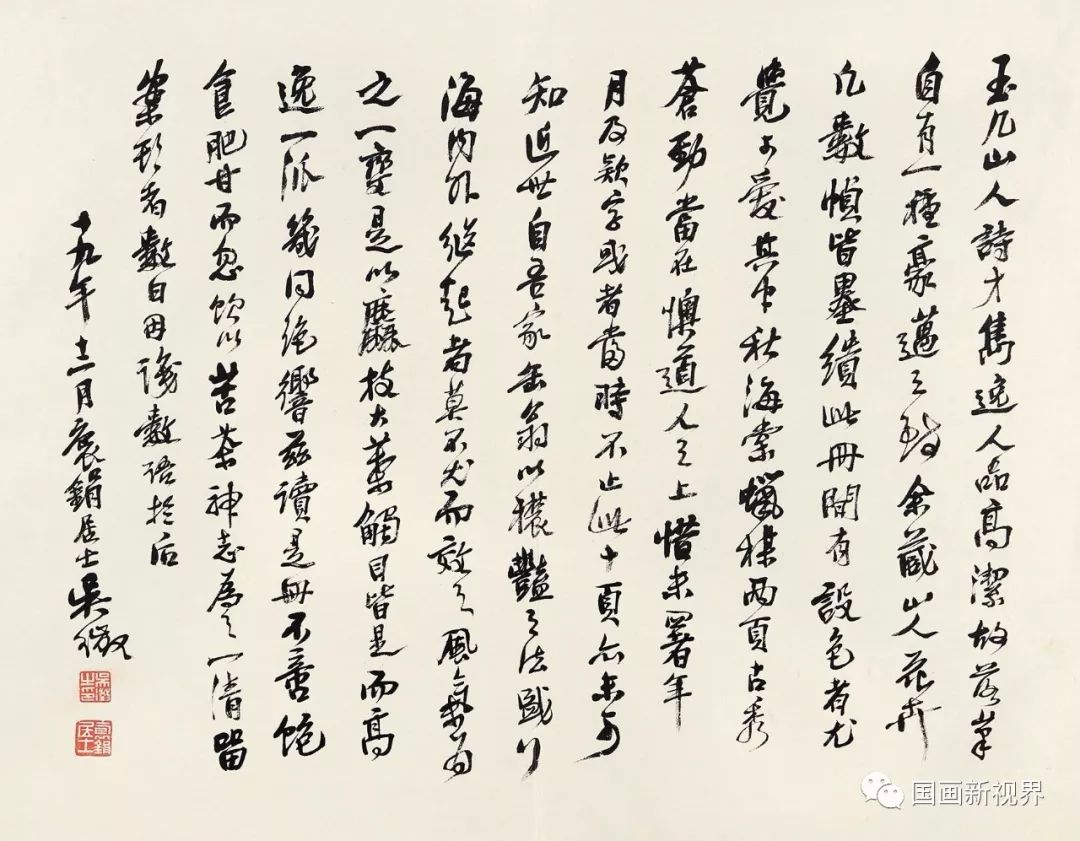 玉几山人詩才雋逸人品高潔故落筆
自有一種豪邁之致余藏山人花卉
凡數幀皆墨績此冊間有設色者尤
覺可愛其中秋海棠蠟楳兩頁古秀
蒼勁當在懊道人之上惜未署年
月及款字或者當時不止此十頁亦未可
知近世自吾家缶翁以穠豔之法盛行
海內外繼起者莫不尤而效之風氣為
之一變是以麤枝大葉觸目皆是而高
逸一派幾同絶響茲讀是冊不啻飽
食肥甘而忽飲以苦茶神志為之一清留
案頭者數日因識數語於后
十九年十二月褱鋗居士吳徵
国画新视界